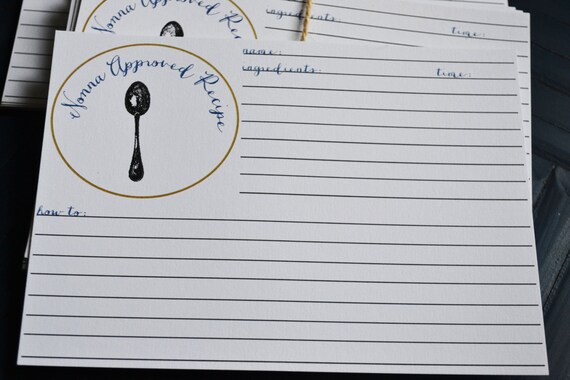 Nonna Approved Recipe
ingredients:
time:
Nonna Approved Recipe
name:
ingredients:
time:
how to: